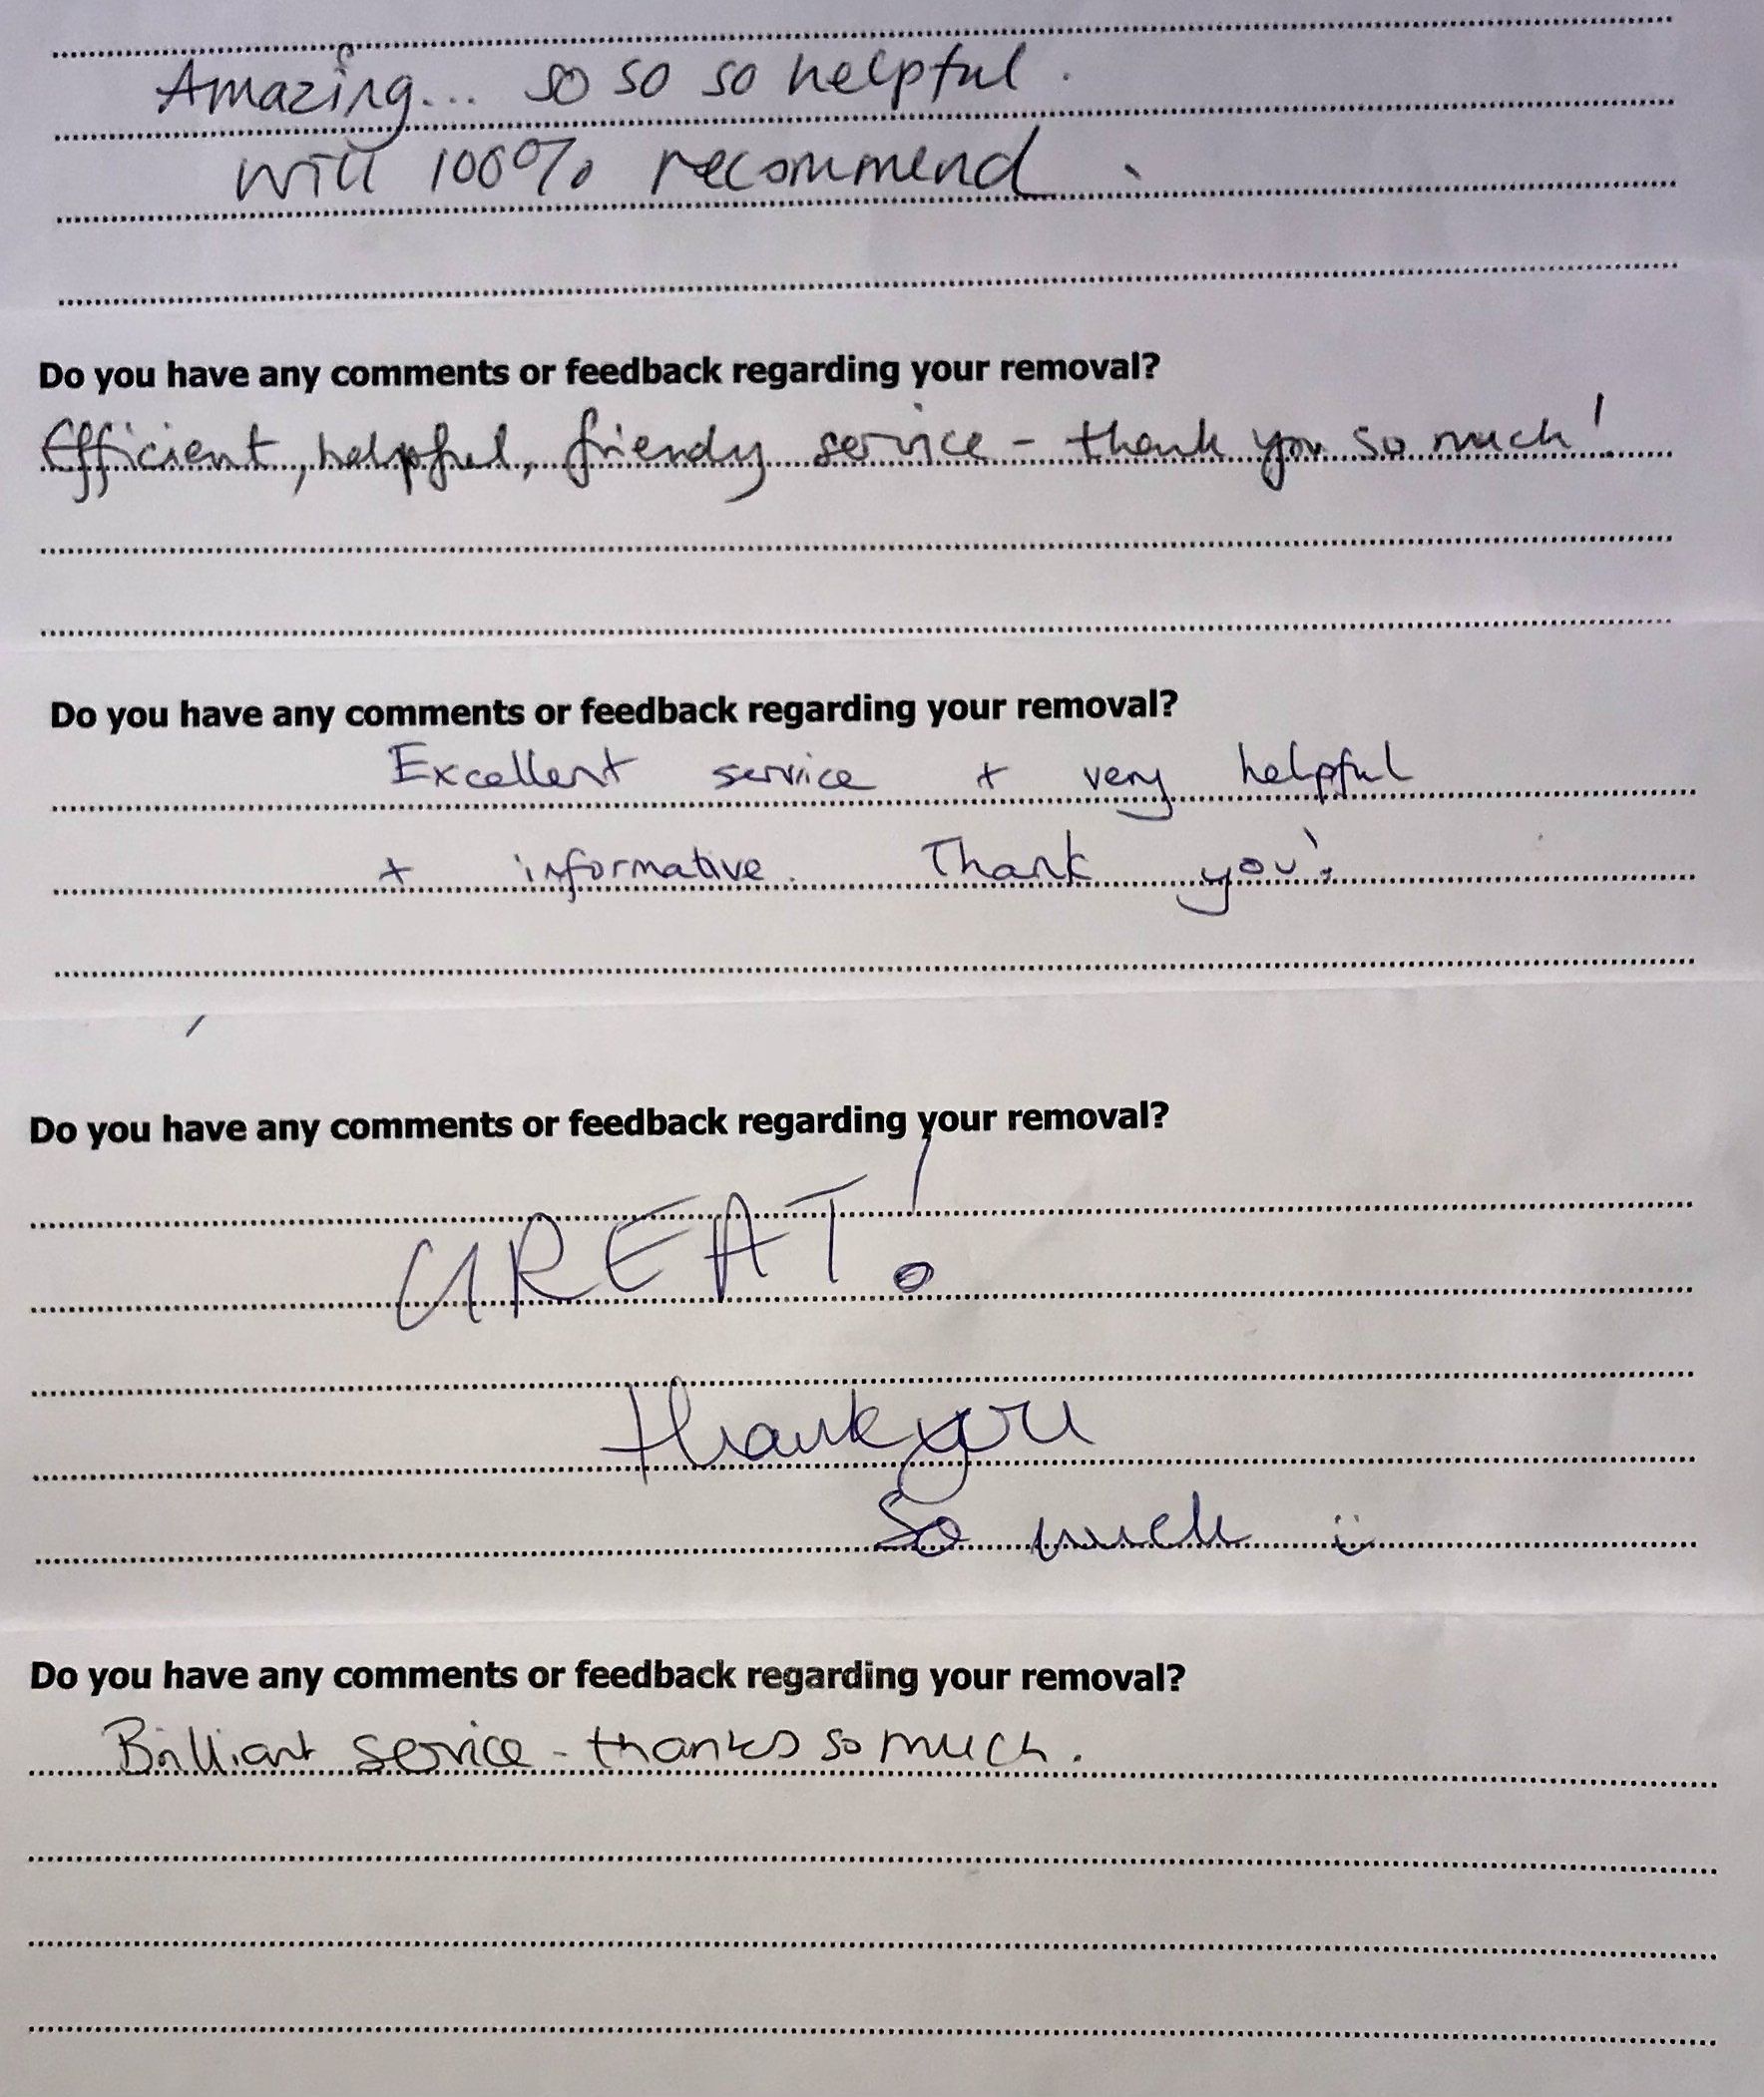 Amazing... so so so helpful.
Will 100% recommend.
Do you have any comments or feedback regarding your removal?
Efficient, helpful, friendly service - thank you so much!
Do you have any comments or feedback regarding your removal?
Excellent service + very helpful
+ informative. Thank you!
Do you have any comments or feedback regarding your removal?
GREAT!
thank you
So much :)
Do you have any comments or feedback regarding your removal?
Brilliant service - thanks so much.